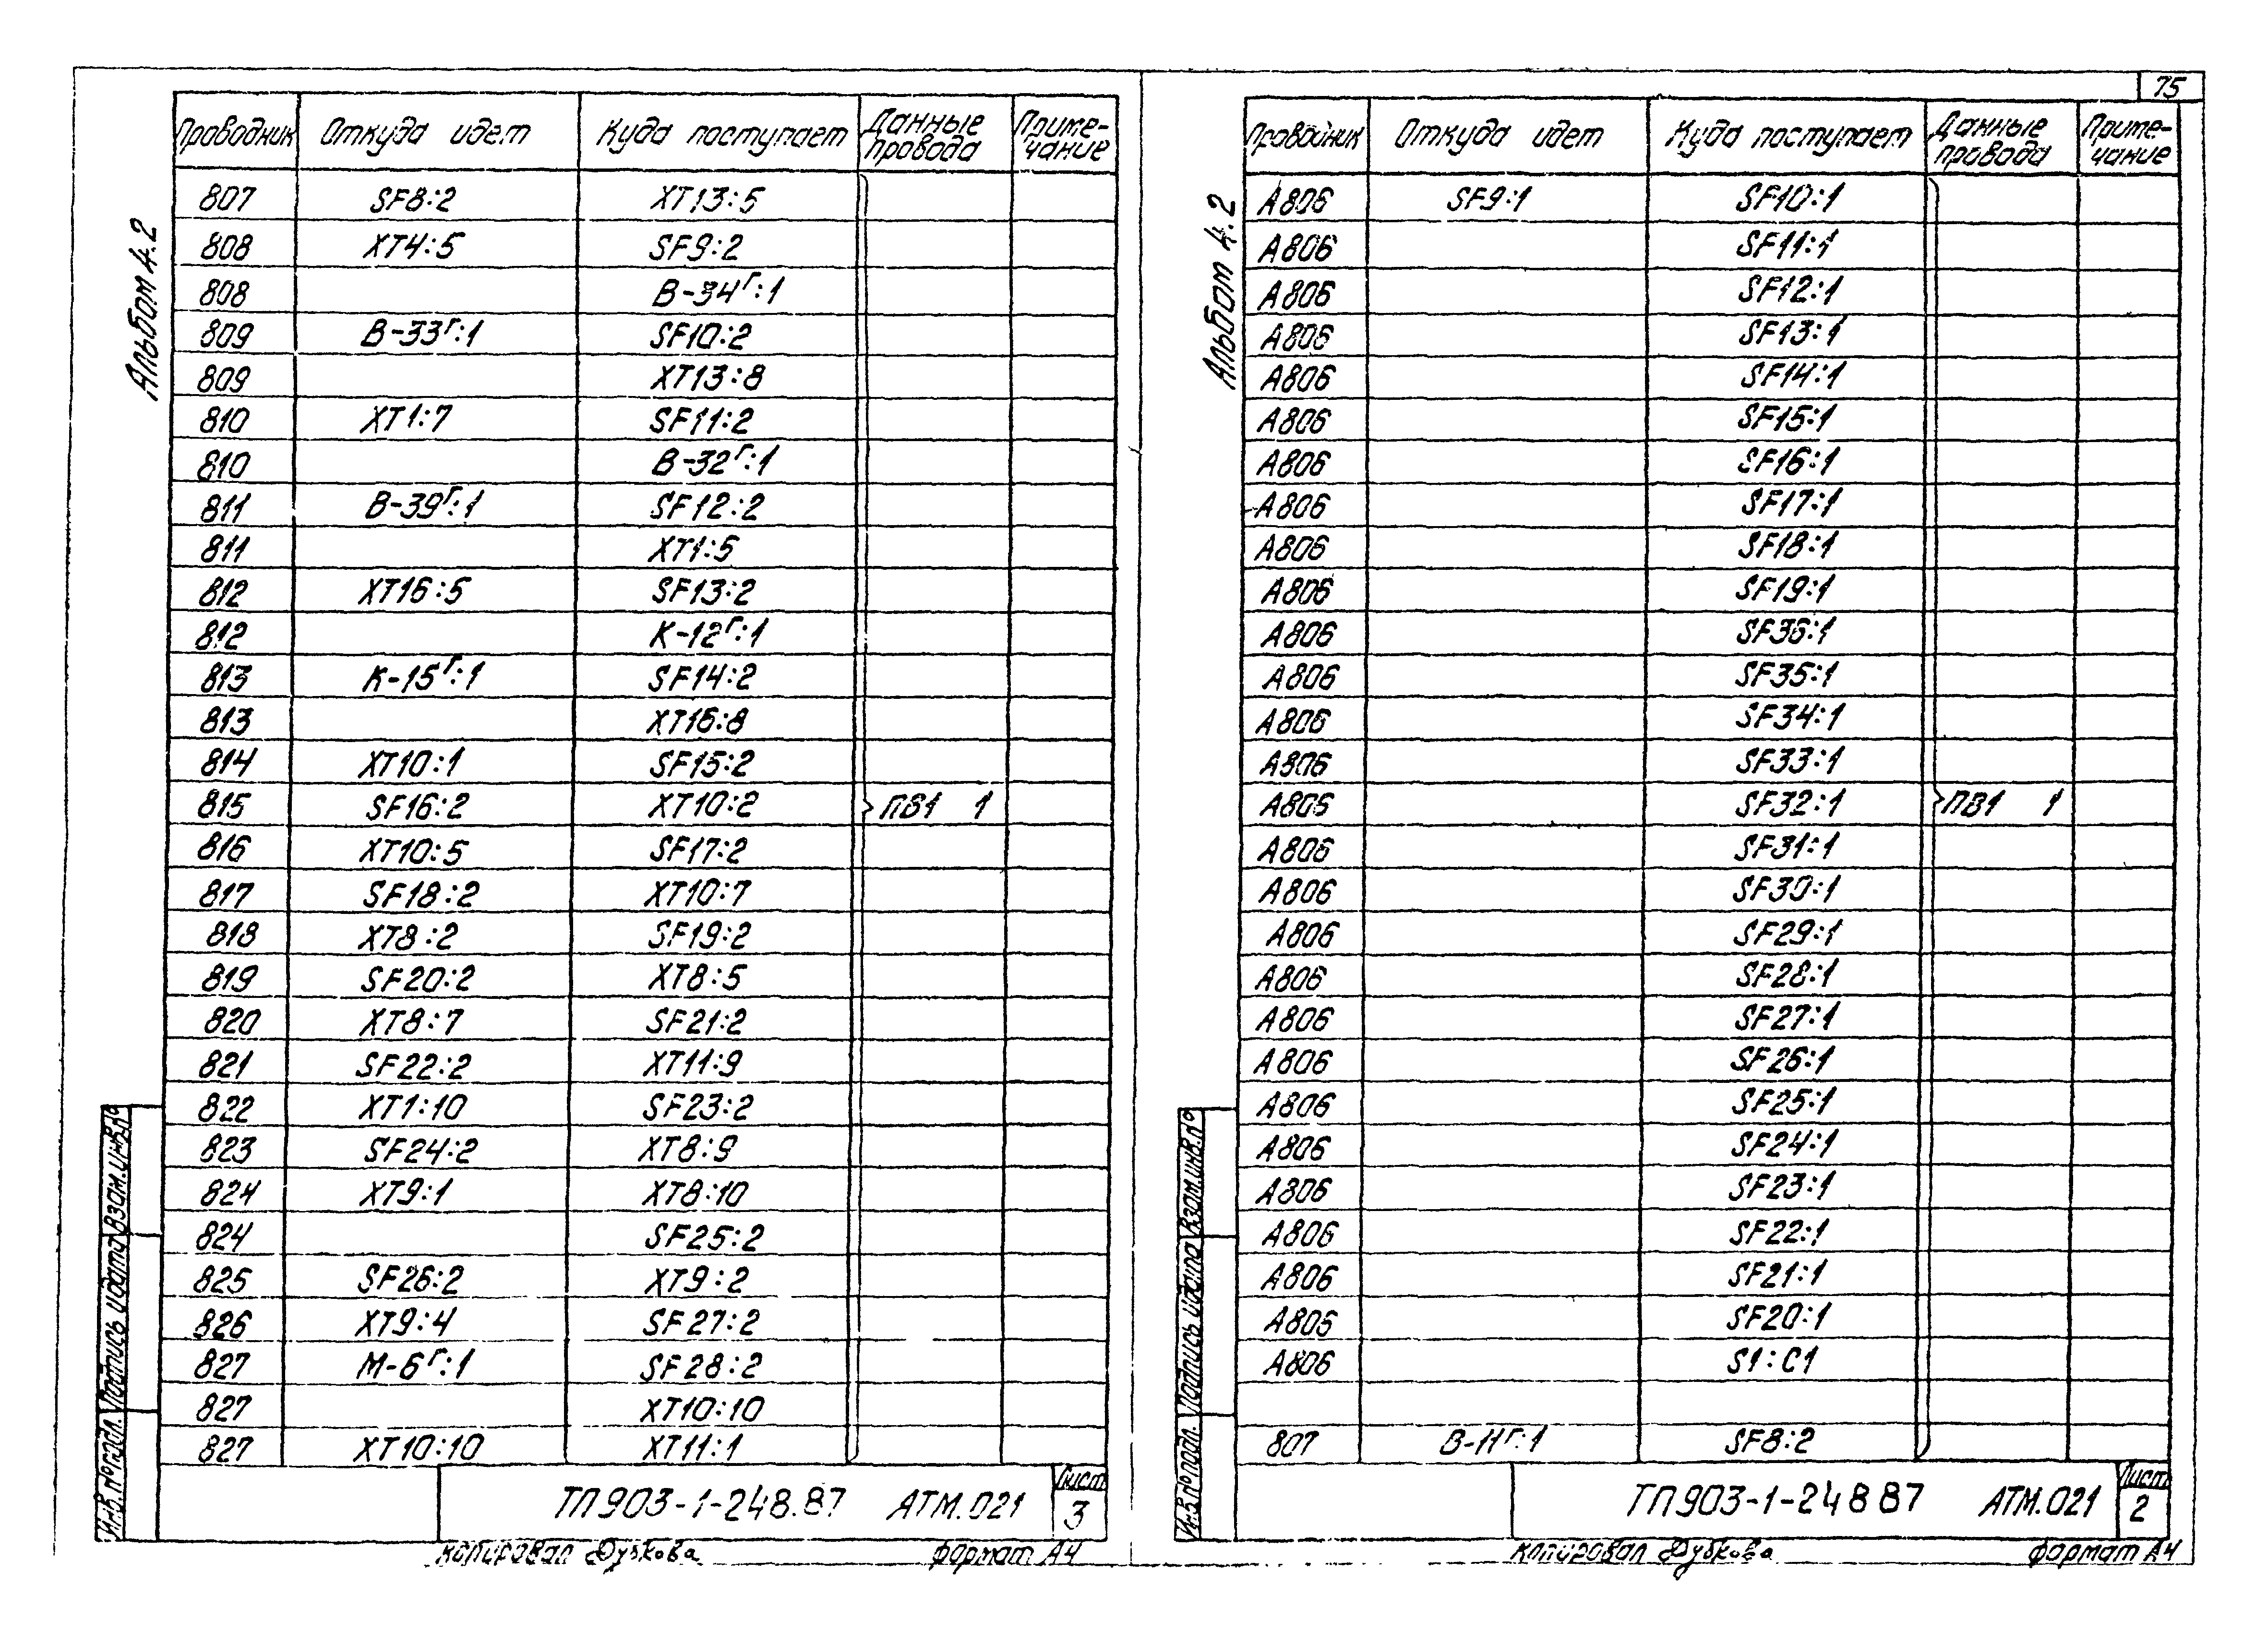 75
Альбом 4.2
Проводник Откуда идет Куда поступает Данные провода Примечание
807 SF8:2 XT13:5
808 XT4:5 SF9:2
808 В-34Г:1
809 В-33Г:1 SF10:2
809 XT13:8
810 XT1:7 SF11:2
810 В-32Г:1
811 В-39Г:1 SF12:2
811 XT1:5
812 XT16:5 SF13:2
812 К-12Г:1
813 К-15Г:1 SF14:2
813 XT16:8
814 XT10:1 SF15:2
815 SF16:2 XT10:2 ПВ1 1
816 XT10:5 SF17:2
817 SF18:2 XT10:7
818 XT8:2 SF19:2
819 SF20:2 XT8:5
820 XT8:7 SF21:2
821 SF22:2 XT11:9
822 XT1:10 SF23:2
823 SF24:2 XT8:9
824 XT9:1 XT8:10
824 SF25:2
825 SF26:2 XT9:2
826 XT9:4 SF27:2
827 М-6Г:1 SF28:2
827 XT10:10
827 XT10:10 XT11:1
Инв.№ подл. Подпись и дата Взам.инв.№
ТП903-1-248.87 АТМ.021 Лист 3
Копировал Дубкова Формат А4
Альбом 4.2
Проводник Откуда идет Куда поступает Данные провода Примечание
А806 SF9:1 SF10:1
А806 SF11:1
А806 SF12:1
А806 SF13:1
А806 SF14:1
А806 SF15:1
А806 SF16:1
А806 SF17:1
А806 SF18:1
А806 SF19:1
А806 SF36:1
А806 SF35:1
А806 SF34:1
А806 SF33:1
А806 SF32:1 ПВ1 1
А806 SF31:1
А806 SF30:1
А806 SF29:1
А806 SF28:1
А806 SF27:1
А806 SF26:1
А806 SF25:1
А806 SF24:1
А806 SF23:1
А806 SF22:1
А806 SF21:1
А806 SF20:1
А806 S1:C1
807 В-11Г:1 SF8:2
Инв.№ подл. Подпись и дата Взам.инв.№
ТП903-1-248 87 АТМ.021 Лист 2
Копировал Дубкова Формат А4